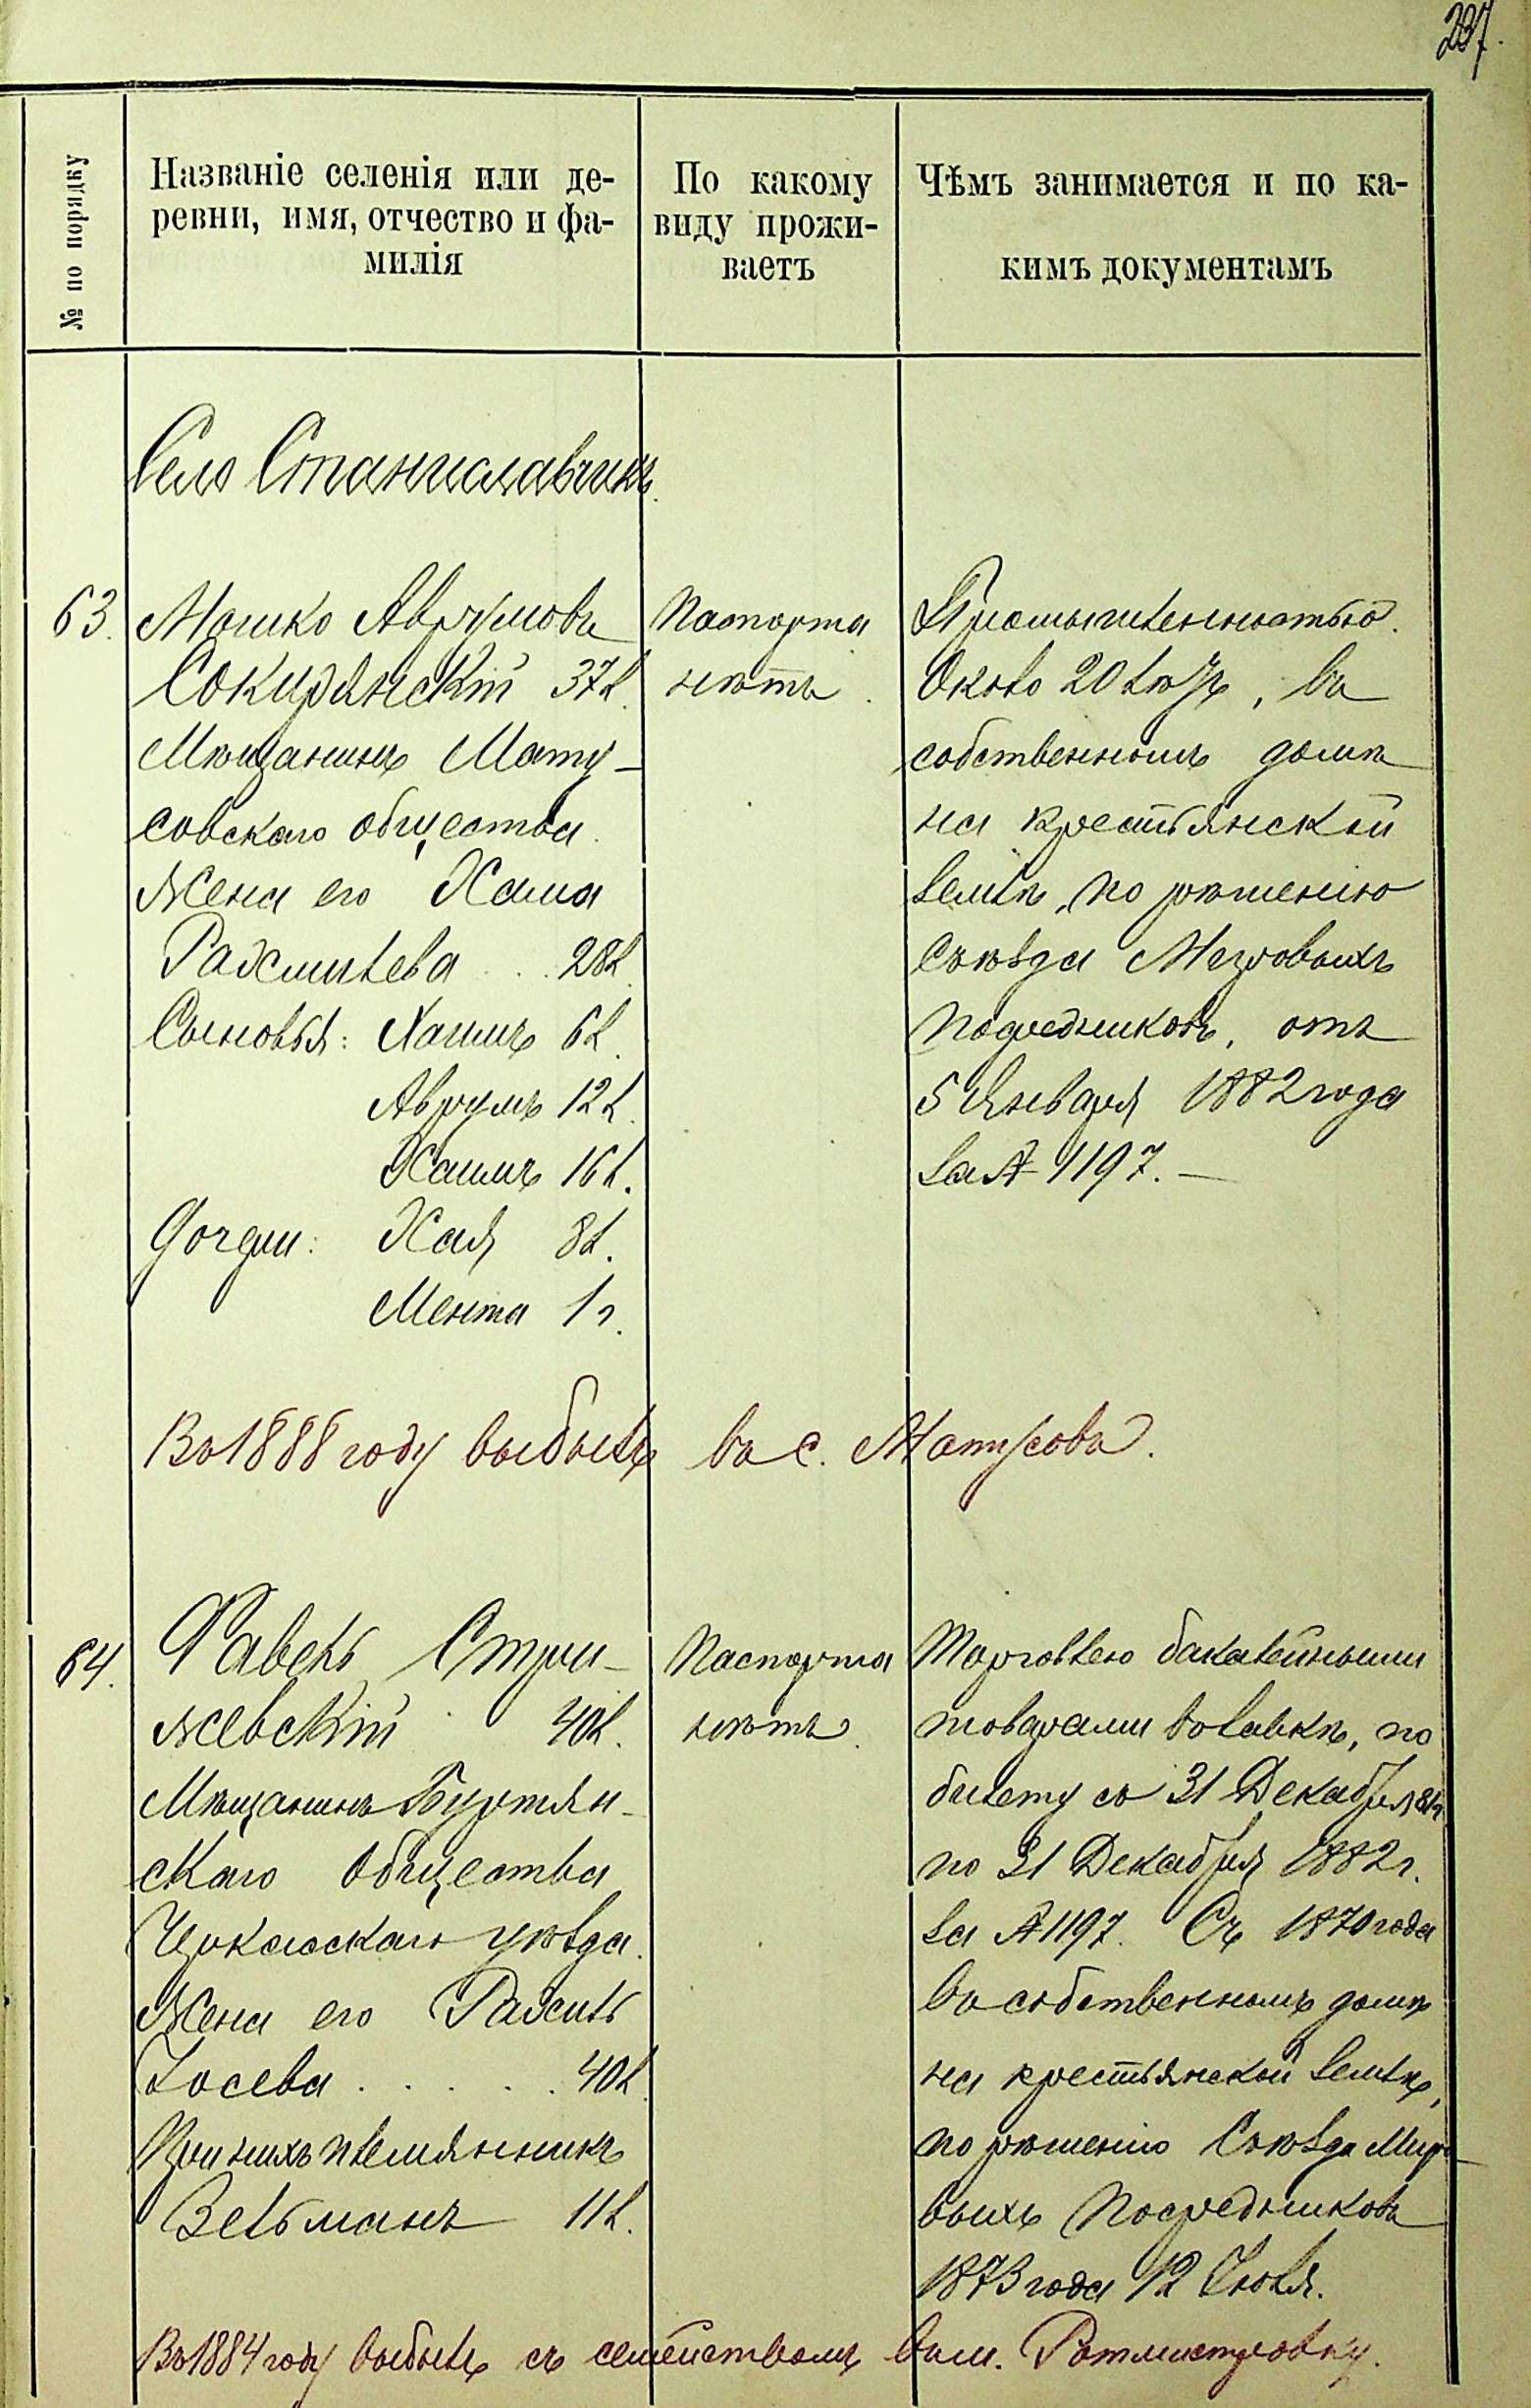 237.
№ по порядку
Названіе селенія или де-
ревни, имя, отчество и фа-
милія
По какому
виду прожи-
ваетъ
Чѣмъ занимается и по ка-
кимъ документамъ
Село Станиславчикъ.
63. Мошко Аврумовъ
Сокирянскій 37 л.
Мѣщанинъ Мату-
совскаго общества.
Жена его Хама
Рахмилева . . 28 л.
Сыновья: Хаимъ 6 л.
Аврумъ 12 л.
Хаимъ 16 л.
Дочери: Хая 8 л.
Мента 1 г.
Паспорта
нѣтъ.
Промышленностью.
Около 20 лѣтъ, въ
собственномъ домѣ
на крестьянской
землѣ, по рѣшенію
Съѣзда Мировыхъ
Посредниковъ, отъ
5 Января 1882 года
за № 1197. —
Въ 1888 году выбылъ въ с. Матусовъ.
64. Равель Стри-
жевскій 40 л.
Мѣщанинъ Буртян-
скаго общества
Черкасскаго уѣзда.
Жена его Рахиль
Іосева . . . . . 40 л.
При нихъ племянникъ
Зельманъ 11 л.
Паспорта
нѣтъ.
Торговлею бакалейными
товарами въ лавкѣ, по
билету съ 31 Декабря 81 г.
по 31 Декабря 1882 г.
за № 1197. Съ 1870 года
въ собственномъ домѣ
на крестьянской землѣ,
по рѣшенію Съѣзда Миро-
выхъ Посредниковъ
1873 года 12 Іюля.
Въ 1884 году выбылъ съ семействомъ въ м. Ротмистровку.